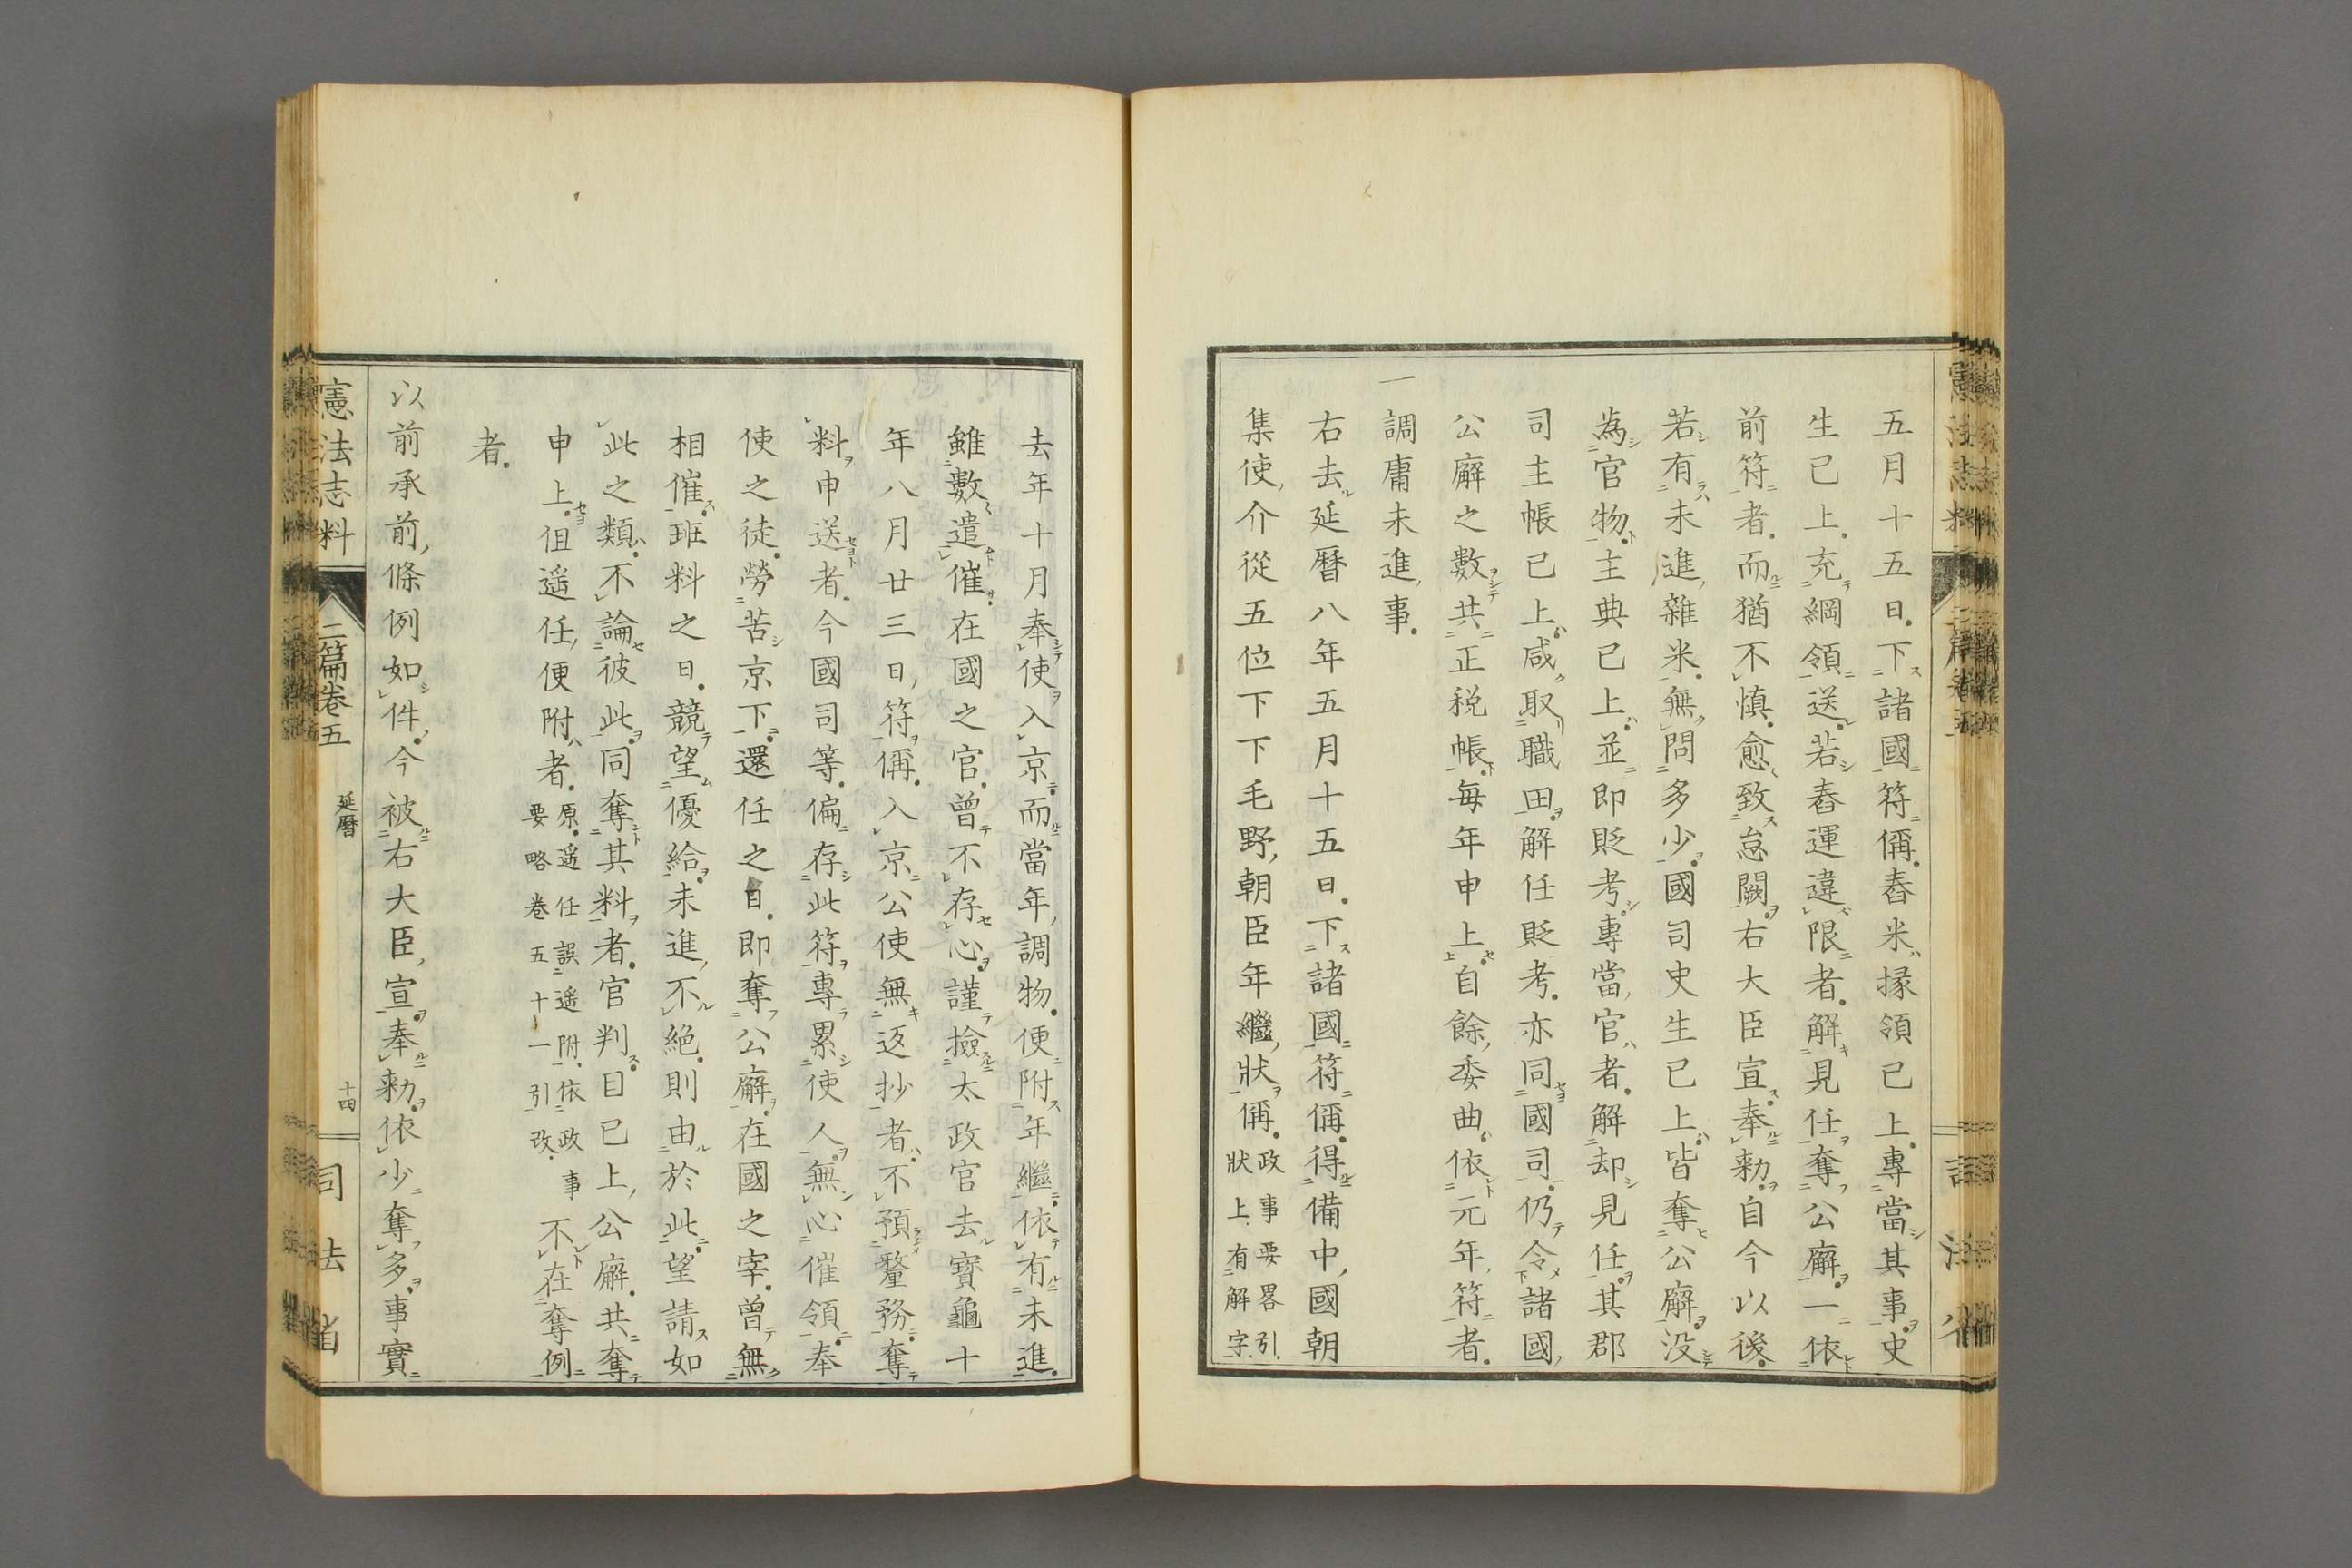 五月十五日。下諸國符偁。舂米掾領已上。專當其事。史
生已上。充綱領送。若舂運違限者。解見任奪公廨。一依
前符者。而猶不慎。愈致怠闕。右大臣宣。奉勑。自今以後。
若有未進雜米。無問多少。國司史生已上。皆奪公廨。没
為官物。主典已上。並即貶考。專當官者。解却見任。其郡
司主帳已上。咸取職田。解任貶考。亦同國司。仍令諸國
公廨之數。共正税帳。每年申上。自餘委曲。依元年符者。
一
調庸未進事。
右去延曆八年五月十五日。下諸國符偁。得備中國朝
集使介從五位下下毛野朝臣年繼狀偁。政事要畧引
狀上有解字
去年十月奉使入京。而當年調物。便附年繼。依有未進。
雖數遣催。在國之官。曾不存心。謹撿太政官去寶龜十
年八月廿三日符偁。入京公使無返抄者。不預釐務。奪
料申送者。今國司等。偏存此符。專累使人。無心催領。奉
使之徒。勞苦京下。還任之日。即奪公廨。在國之宰。曾無
相催。班料之日。競望優給。未進不絕。則由於此。望請如
此之類。不論彼此。同奪其料者。官判。目已上公廨。共奪
申上。但遥任便附者。不在奪例
原。遥任誤遥附。依政事
要略卷五十一引改。
者。
以前承前條例如件。今被右大臣宣。奉勑。依少奪多。事實
憲法志料
二篇卷五
延曆
十四
司法省